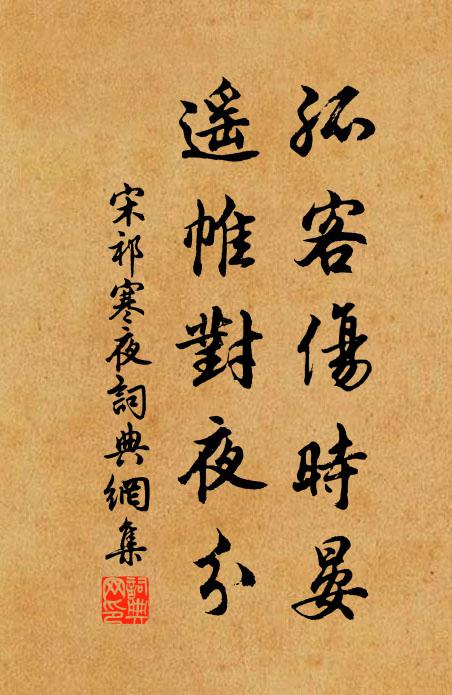 孤客傷時晏
遥帷對夜分
宋祁寒夜詞典網集
詞典網印